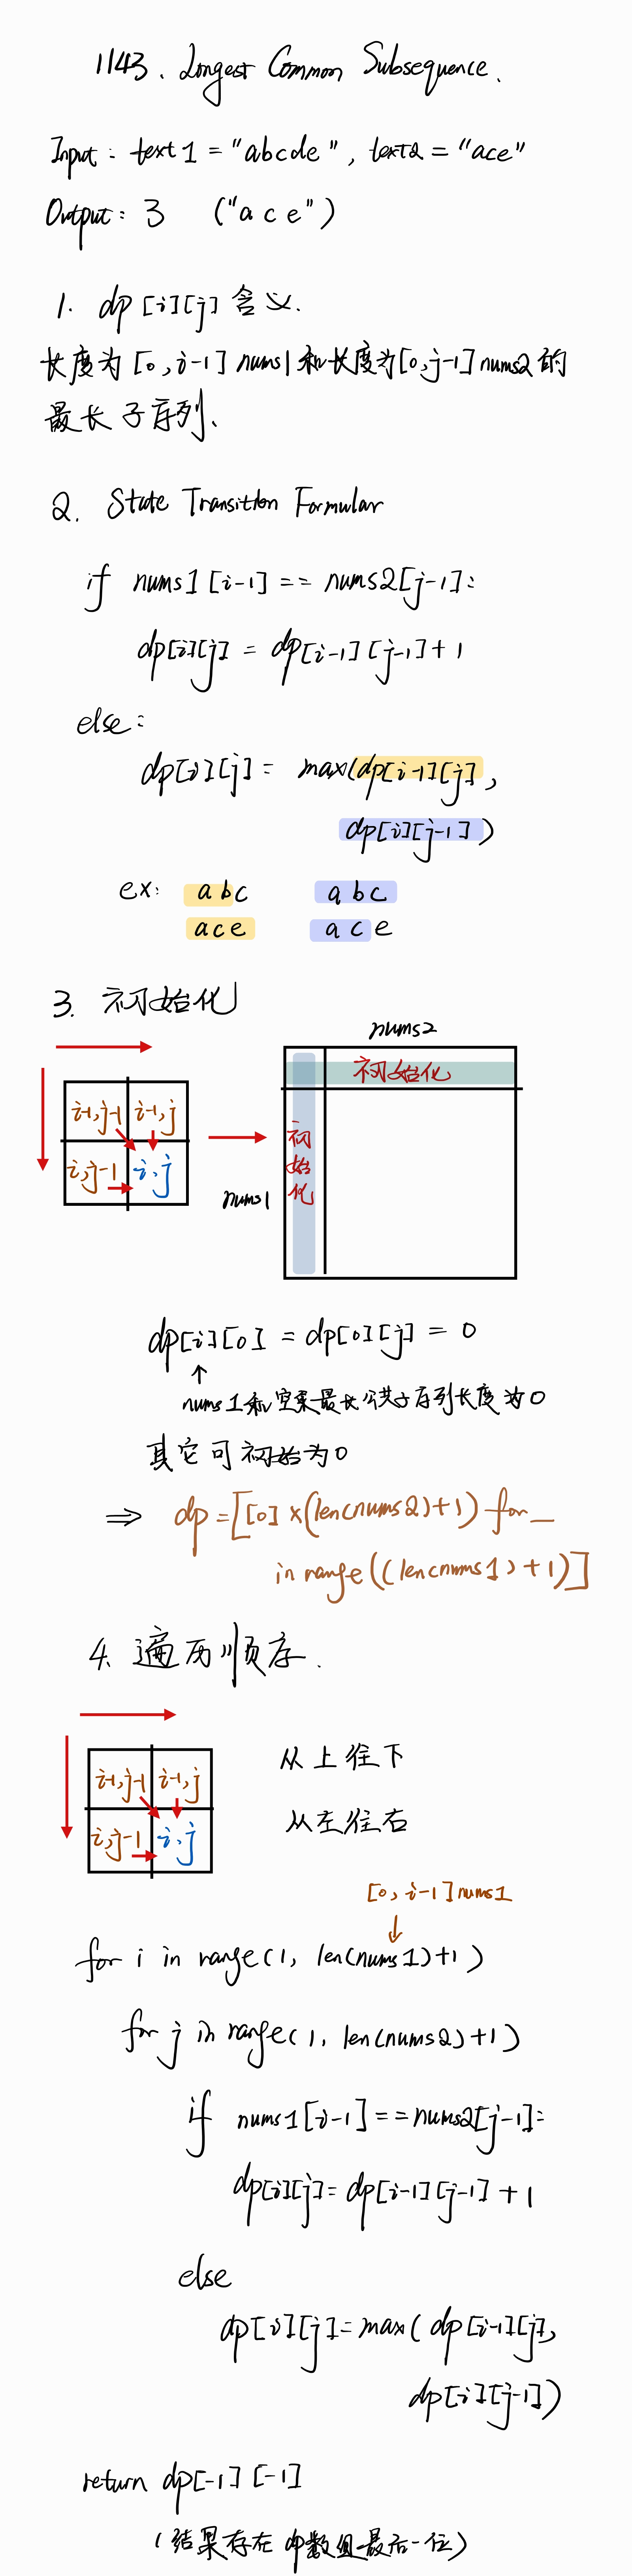 1143. Longest Common Subsequence.
Input: text1 = "abcde", text2 = "ace"
Output: 3 ("ace")
1. dp[i][j] 含义.
长度为[0, i-1] nums1和长度为[0, j-1] nums2的
最长子序列、
2. State Transition Formular
if nums1[i-1] == nums2[j-1]:
dp[i][j] = dp[i-1][j-1] + 1
else:
dp[i][j] = max(dp[i-1][j],
dp[i][j-1])
ex: abc abc
ace ace
3. 初始化
nums2
初始化
i-1, j-1 i-1, j
i, j-1 i, j
初始化
nums1
dp[i][0] = dp[0][j] = 0
↑
nums1和空集最长公共子序列长度为0
其它可初始为0
⇒ dp = [[0] × (len(nums2)+1) for _
in range((len(nums1)+1)]
4. 遍历顺序.
i-1, j-1 i-1, j
i, j-1 i, j
从上往下
从左往右
[0, i-1] nums1
↓
for i in range(1, len(nums1)+1)
for j in range(1, len(nums2)+1)
if nums1[i-1] == nums2[j-1]:
dp[i][j] = dp[i-1][j-1] + 1
else
dp[i][j] = max(dp[i-1][j],
dp[i][j-1])
return dp[-1][-1]
(结果存在dp数组最后一位)